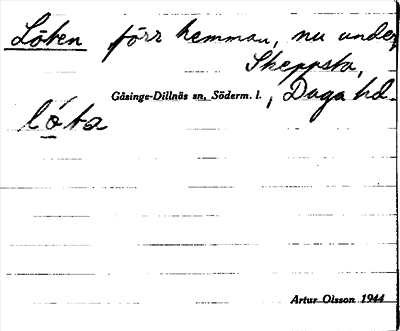 Löten förr hemman, nu under
Skeppsta,
Gåsinge-Dillnäs sn, Söderm. l., Daga hd.
lö̀ta
Artur Olsson 1944